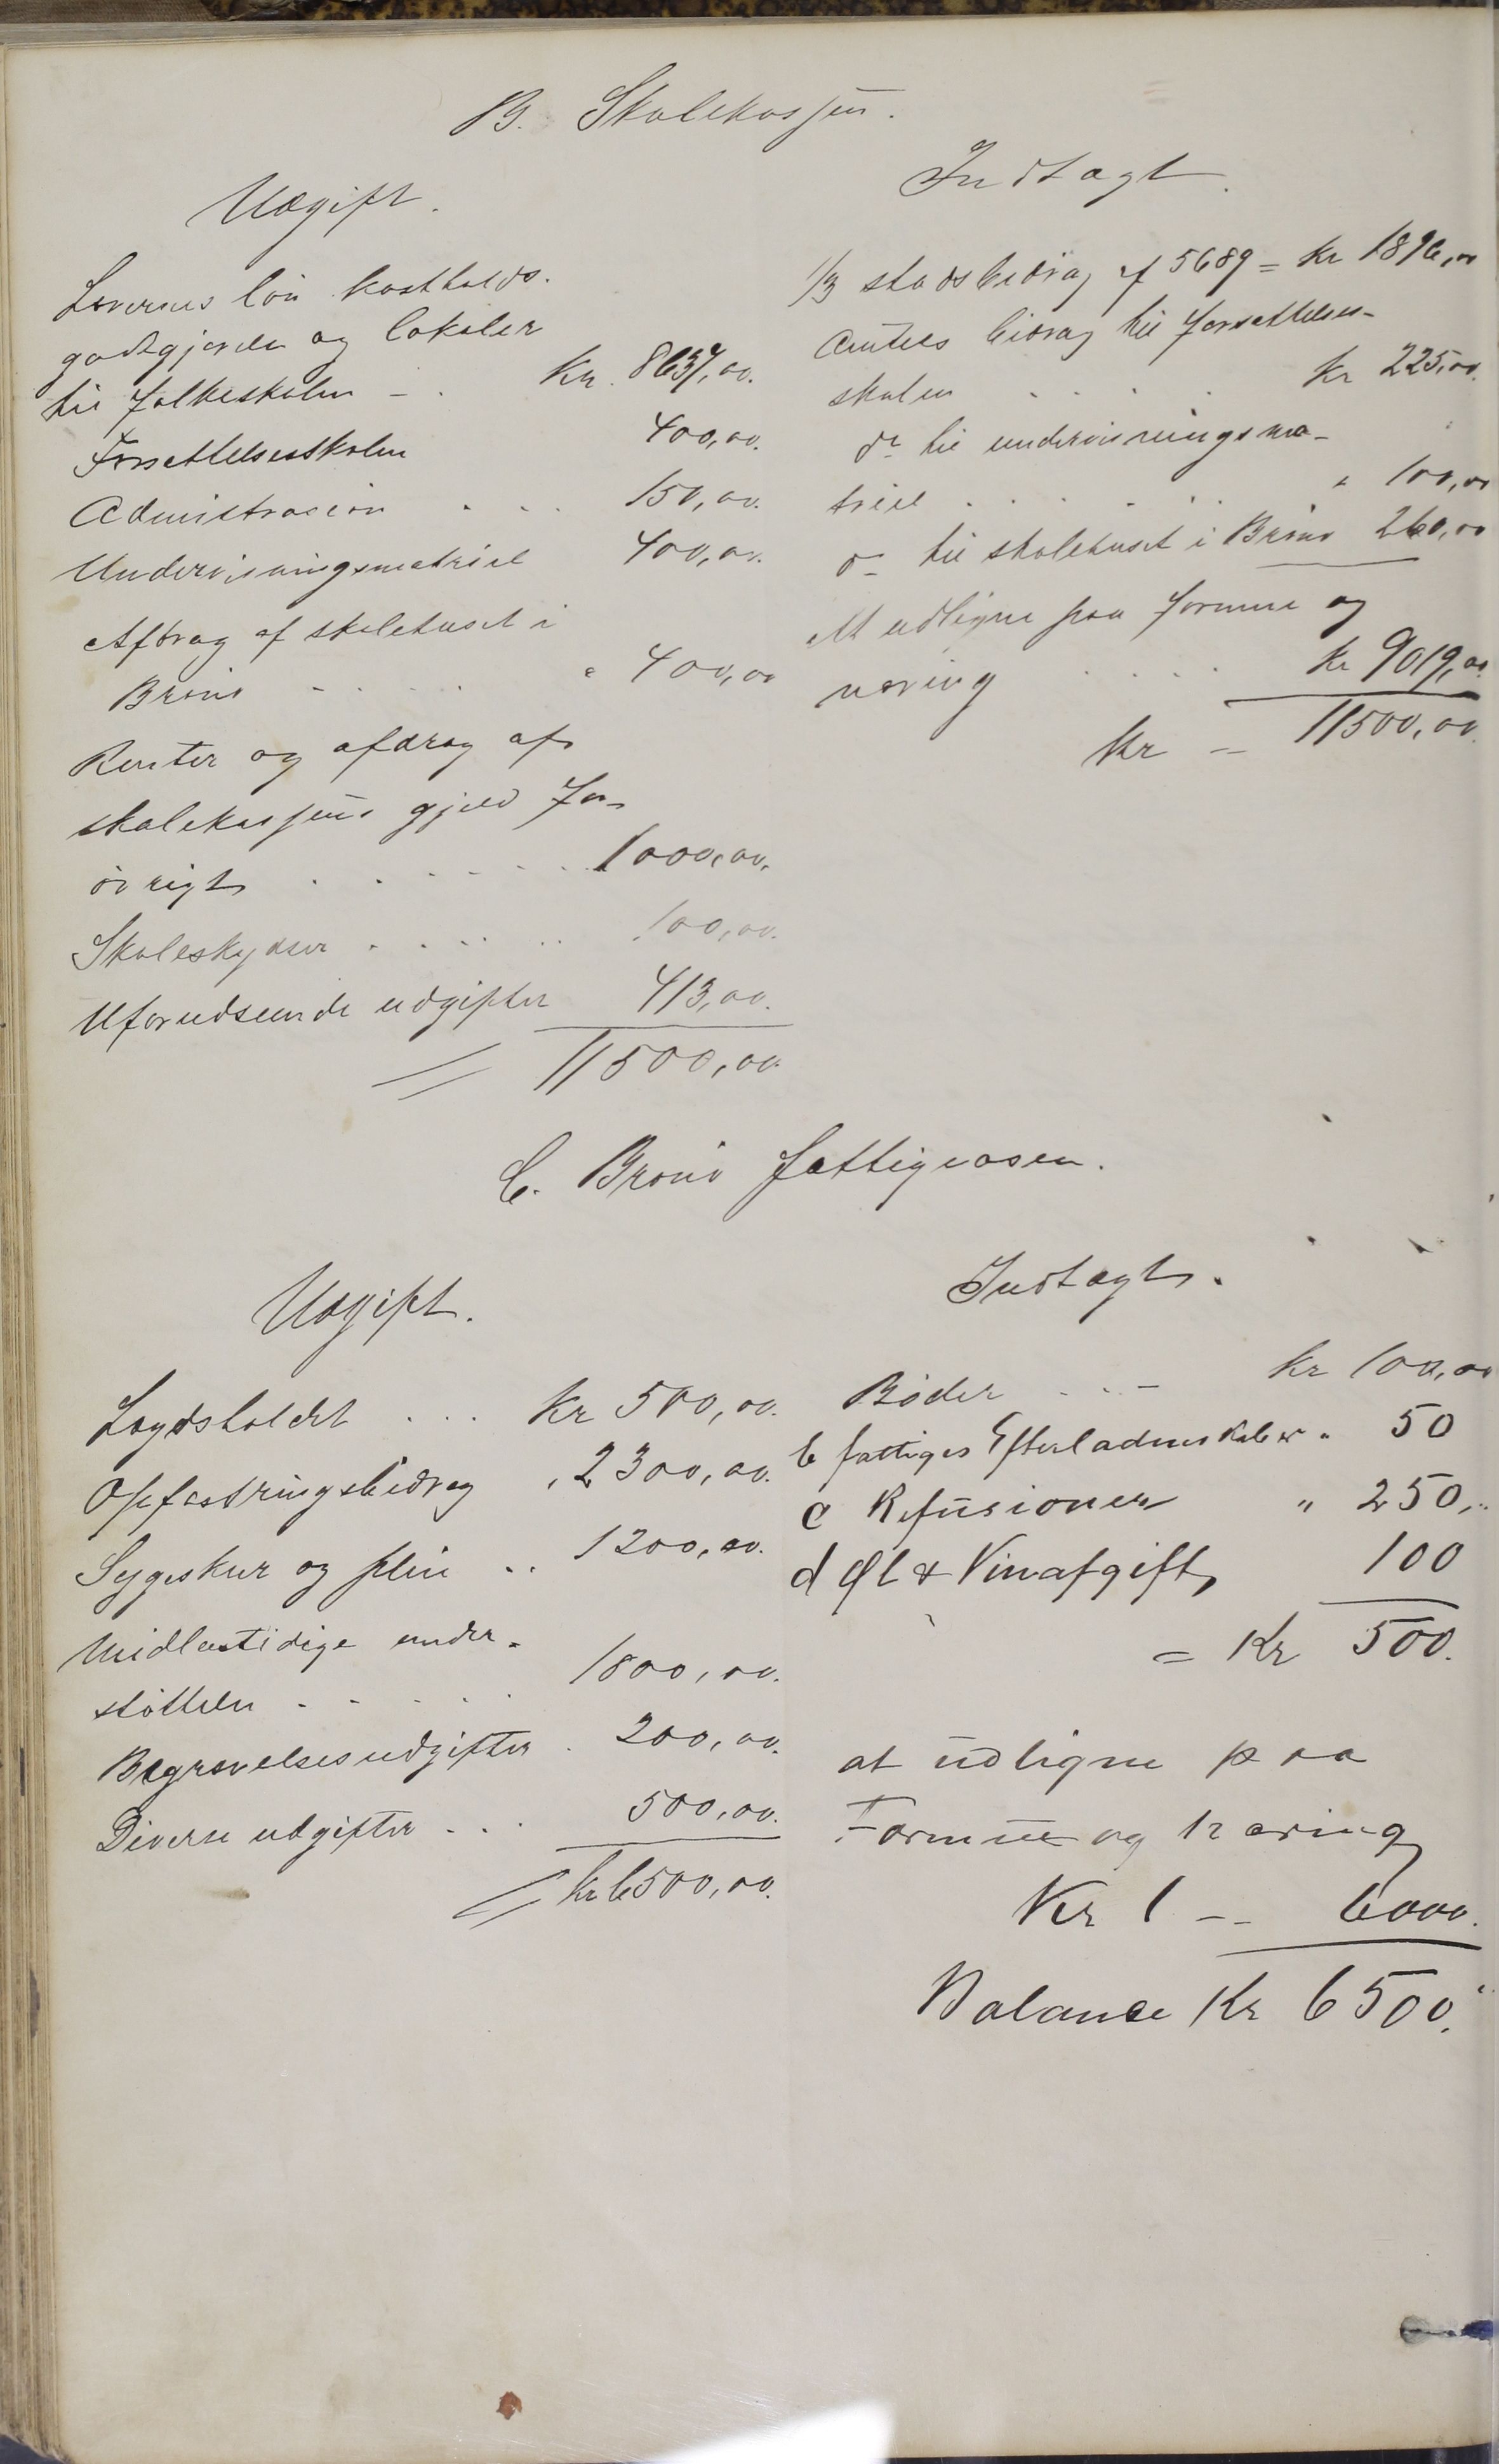 B. Skolekassen.
Udgift.
Lærernes løn kostholds-
godtgjørelse og lokaler
til folkeskolen - . Kr. 8637,00.
Forsettelsesskolen 400,00.
Administrasion . . . 150,00.
Undervisningsmatriel 400,00.
Afdrag af skolehuset i
Brønø . . . . " 400,00
Renter og afdrag af
skolekassens gjeld for-
øvrigt . . . . . . 1000,00.
Skoleskydser . . . . . 100,00.
Uforudseende udgifter 413,00.
= 11500,00.
Indtægt.
1/3 stadsbidrag af 5689 = Kr 1896,00
Amtets bidrag til forsettelses-
skolen . . . . Kr 225,00.
do til undervisningsma-
triel . . . . . " 100,00
do til skolehuset i Brønø 260,00
At udligne paa formue og
næring . . . . Kr 9019,00.
Kr = 11500,00.
C. Brønø fattigvæsen.
Udgift.
Lægdsholdet . . . Kr 500,00.
Opfostringsbidrag " 2300,00.
Sygeskur og pleie . . 1200,00.
Midlertidige under-
støttelser . . . . . 1800,00.
Begravelsesudgifter . 200,00.
Diverse udgifter . . . 500,00.
= Kr 6500,00.
Indtægt.
Bøder . . . Kr 100,00
b fattiges Efterladenskaber " 50
c Refusioner " 250,"
d Øl & Vinafgift 100
= Kr 500.
at udligne paa
Formue og næring
Kr 1 -- 6000.
Balance Kr 6500.